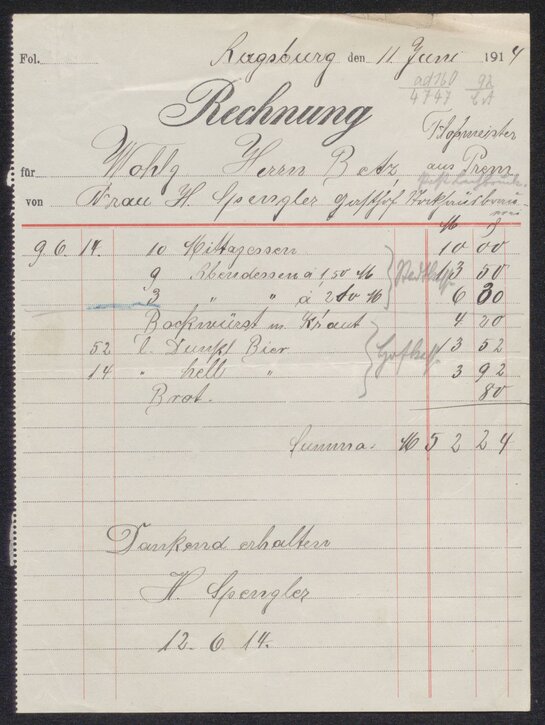 Fol.
Augsburg den 11 Juni 1914
ad160 92
4747
Rechnung
Hofmeister
für Wohlg Herrn Betz aus Prem
von Frau H Spengler Gasthof Stockhausbrau
M
9 6. 14. 10 Mittagessen 10 00
9 Abendessen a 1 50 M 13 50
3 " " a 210 M 6 30
Bockwürst u. Kraut 4 20
52 l. Dunkl Bier 13 52
14 " hell " 3 92
Brot. 80
Summa. M 52 24
Dankend erhalten
H. Spengler
12. 6. 14.